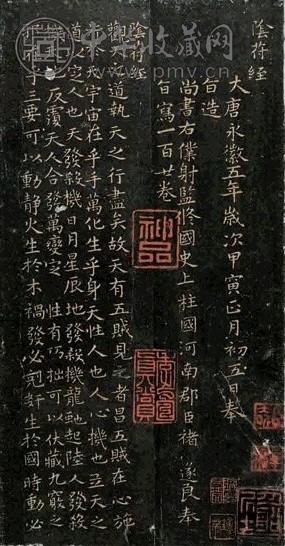 陰符經
大唐永徽五年歲次甲寅正月初五日奉
旨造
尚書右僕射監修國史上柱國河南郡臣褚遂良奉
旨寫一百廿卷
陰符經
觀天之道執天之行盡矣故天有五賊見之者昌五賊在心施
行於天宇宙在乎手萬化生乎身天性人也人心機也立天之
道以定人也天發殺機日月星辰地發殺機龍虵起陸人發殺
機天地反覆天人合發萬變定基性有巧拙可以伏藏九竅之
邪在乎三要可以動靜火生於木禍發必剋奸生於國時動必
神品
中华收藏网
www.pmv.cn